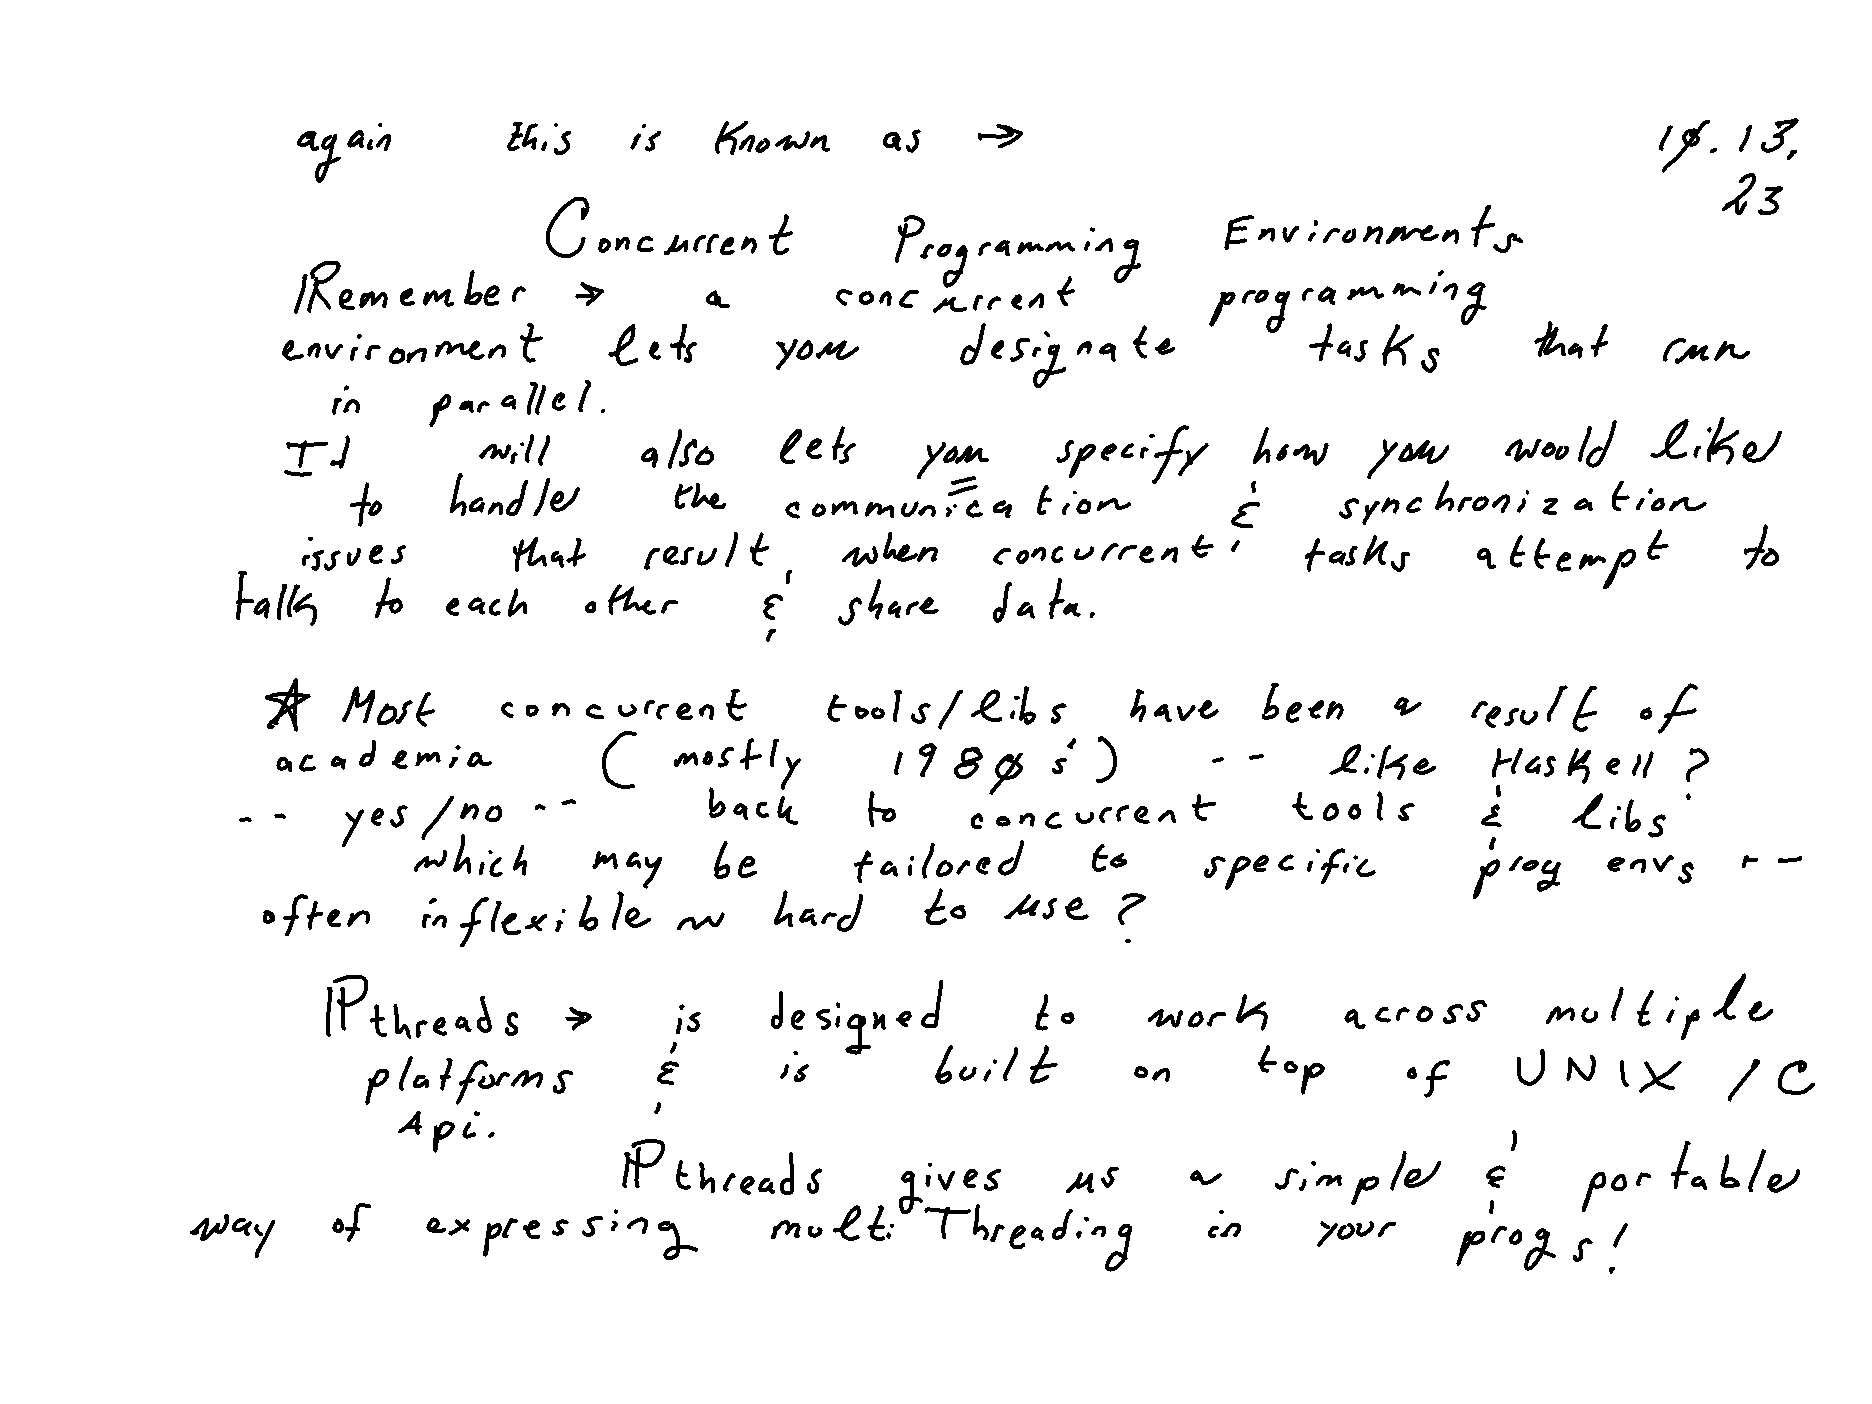 again this is Known as → 10.13,
23
Concurrent Programming Environments
Remember → a concurrent programming
environment lets you designate tasks that run
in parallel.
It will also lets you specify how you would like
to handle the communication & synchronization
issues that result when concurrent tasks attempt to
talk to each other & share data.
☆ Most concurrent tools/libs have been a result of
academia (mostly 1980's) -- like Haskell?
-- yes/no -- back to concurrent tools & libs
which may be tailored to specific prog envs --
often inflexible n hard to use?
Pthreads → is designed to work across multiple
platforms & is built on top of UNIX / C
Api.
Pthreads gives us a simple & portable
way of expressing multi Threading in your progs!